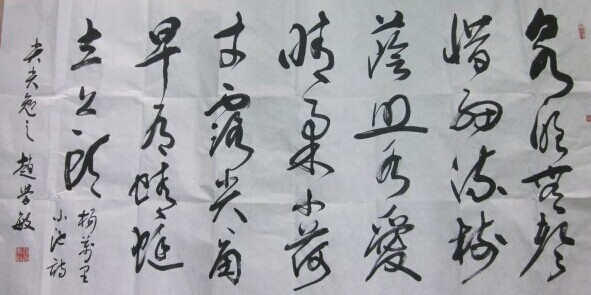 泉眼無聲
惜細流樹
蔭照水愛
晴柔小荷
才露尖々角
早有蜻蜓
立上頭
楊萬里
小池詩
趙學敏